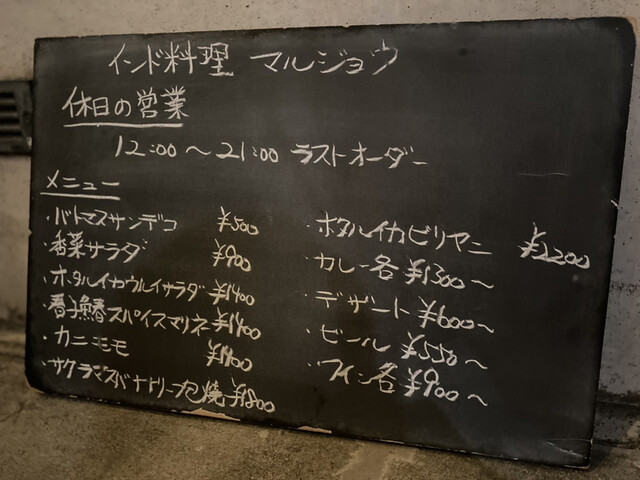 インド料理 マルジョウ
休日の営業
12:00〜21:00 ラストオーダー
メニュー
・バトマスサンデコ ¥500
・香菜サラダ ¥900
・ホタルイカウルイサラダ ¥1400
・春子鯖スパイスマリネ ¥1400
・カニモモ ¥1400
・サクラマスバナナリーフ包焼 ¥1800
・ホタルイカビリヤニ ¥2200
・カレー各 ¥1300〜
・デザート ¥600〜
・ビール ¥550〜
・ワイン各 ¥900〜